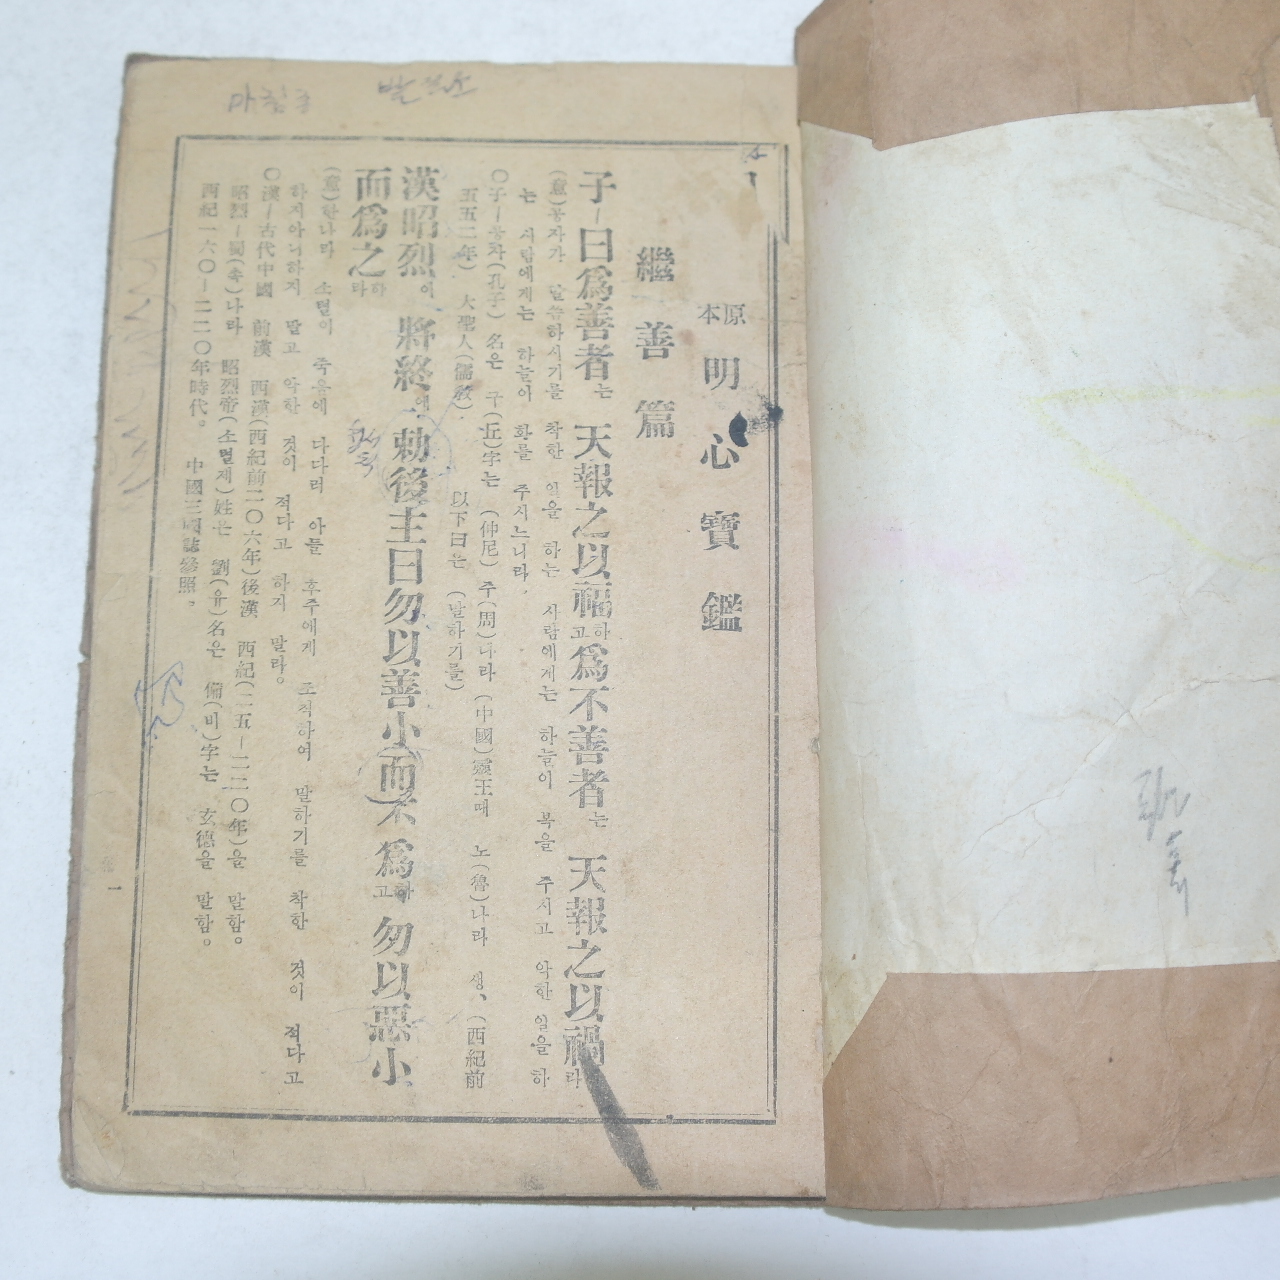 原本 明心寶鑑
繼善篇
子ㅣ曰爲善者는 天報之以福하고 爲不善者는 天報之以禍라
(意)공자가 말씀하시기를 착한 일을 하는 사람에게는 하늘이 복을 주시고 악한 일을 하
는 사람에게는 하늘이 화를 주시느니라.
○子ㅣ공자(孔子) 名은 구(丘)字는 (仲尼) 주(周)나라 (中國)靈王때 노(魯)나라 생、(西紀前
五五二年) 大聖人(儒敎). 以下曰은 (말하기를)
漢昭烈이 將終에 勅後主曰勿以善小而不爲하고 勿以惡小
而爲之하라
(意)한나라 소렬이 죽음에 다다러 아들 후주에게 조칙하여 말하기를 착한 것이 적다고
하지아니하지 말고 악한 것이 적다고 하지 말라。
○漢ㅣ古代中國 前漢 西漢(西紀前二〇六年)後漢 西紀(二五ㅣ二二〇年)을 말함。
昭烈ㅣ蜀(촉)나라 昭烈帝(소렬제)姓은 劉(유)名은 備(비)字는 玄德을 말함。
西紀一六〇ㅣ二二〇年時代。 中國三國誌參照。
一